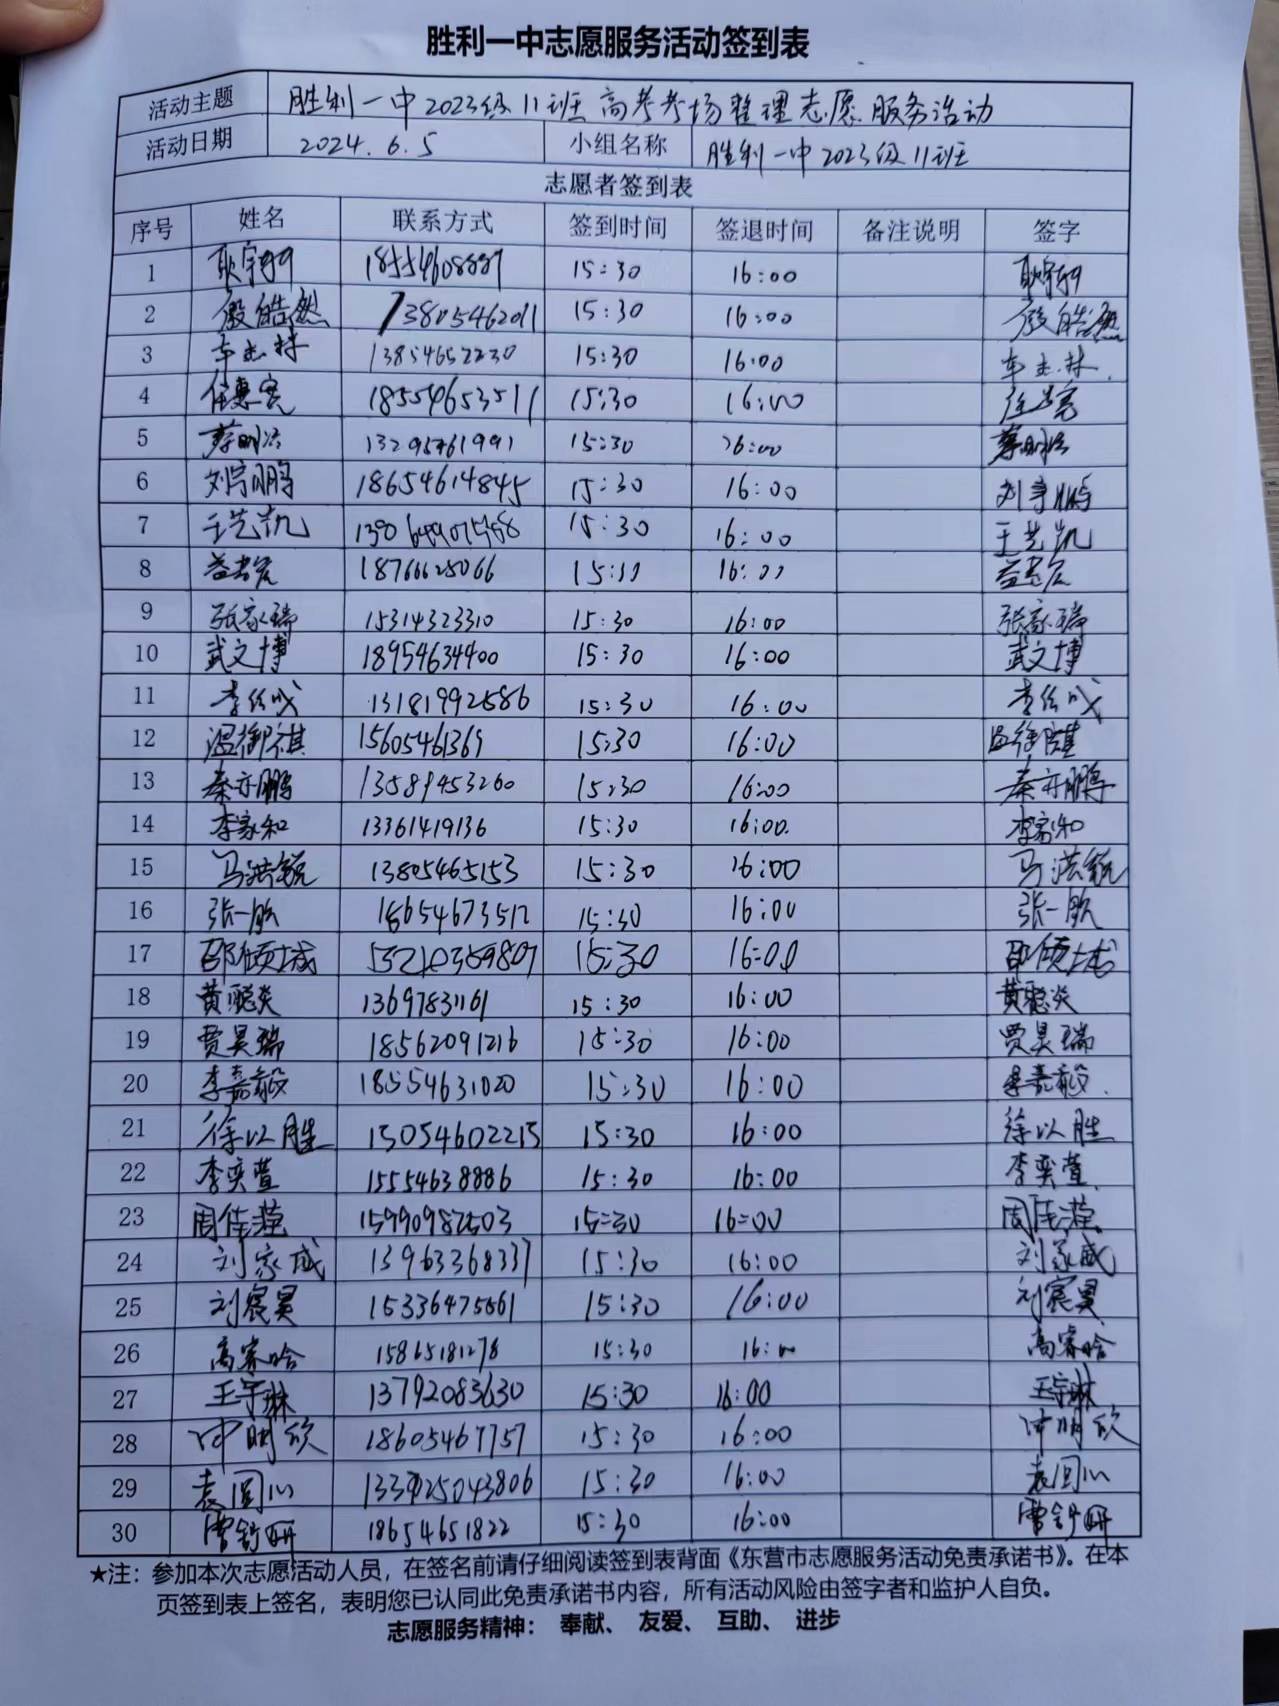 胜利一中志愿服务活动签到表
活动主题 胜利一中2023级11班高考考场整理志愿服务活动
活动日期 2024.6.5 小组名称 胜利一中2023级11班
志愿者签到表
序号 姓名 联系方式 签到时间 签退时间 备注说明 签字
1 15:30 16:00
2 殷皓然 13805462011 15:30 16:00 殷皓然
3 13854652230 15:30 16:00
4 任惠宾 18554653511 15:30 16:00
5 蔡明浩 15:30 16:00 蔡明浩
6 刘宇鹏 18654614845 15:30 16:00 刘宇鹏
7 王艺凯 15:30 16:00 王艺凯
8 18766625066 16:00
9 张家瑞 15314323310 15:30 16:00 张家瑞
10 武文博 18954634400 15:30 16:00 武文博
11 15:30 16:00
12 温御祺 15605461369 15:30 16:00 温御祺
13 秦亦鹏 13589453260 15:30 16:00 秦亦鹏
14 李家和 13361419136 15:30 16:00. 李家和
15 马洪锐 13805465153 15:30 16:00 马洪锐
16 15:30 16:00
17 邵倾城 15210359807 15:30 16:00 邵倾城
18 黄聪炎 13697831161 15:30 16:00 黄聪炎
19 贾昊瑞 18562091216 15:30 16:00 贾昊瑞
20 李嘉毅 18554631020 15:30 16:00 李嘉毅
21 徐以胜 15054602215 15:30 16:00 徐以胜
22 李奕萱 15554638886 15:30 16:00 李奕萱
23 周佳滢 15990982503 15:30 16:00 周佳滢
24 刘家威 13963368337 15:30 16:00 刘家威
25 刘宸昊 15336475561 15:30 16:00 刘宸昊
26 高睿晗 15865181278 15:30 16:00 高睿晗
27 王宇琳 13792083630 15:30 16:00 王宇琳
28 仲明欣 18605467757 15:30 16:00 仲明欣
29 袁圆心 15:30 16:00 袁圆心
30 曹舒妍 18654651822 15:30 16:00 曹舒妍
★注：参加本次志愿活动人员，在签名前请仔细阅读签到表背面《东营市志愿服务活动免责承诺书》。在本
页签到表上签名，表明您已认同此免责承诺书内容，所有活动风险由签字者和监护人自负。
志愿服务精神： 奉献、 友爱、 互助、 进步